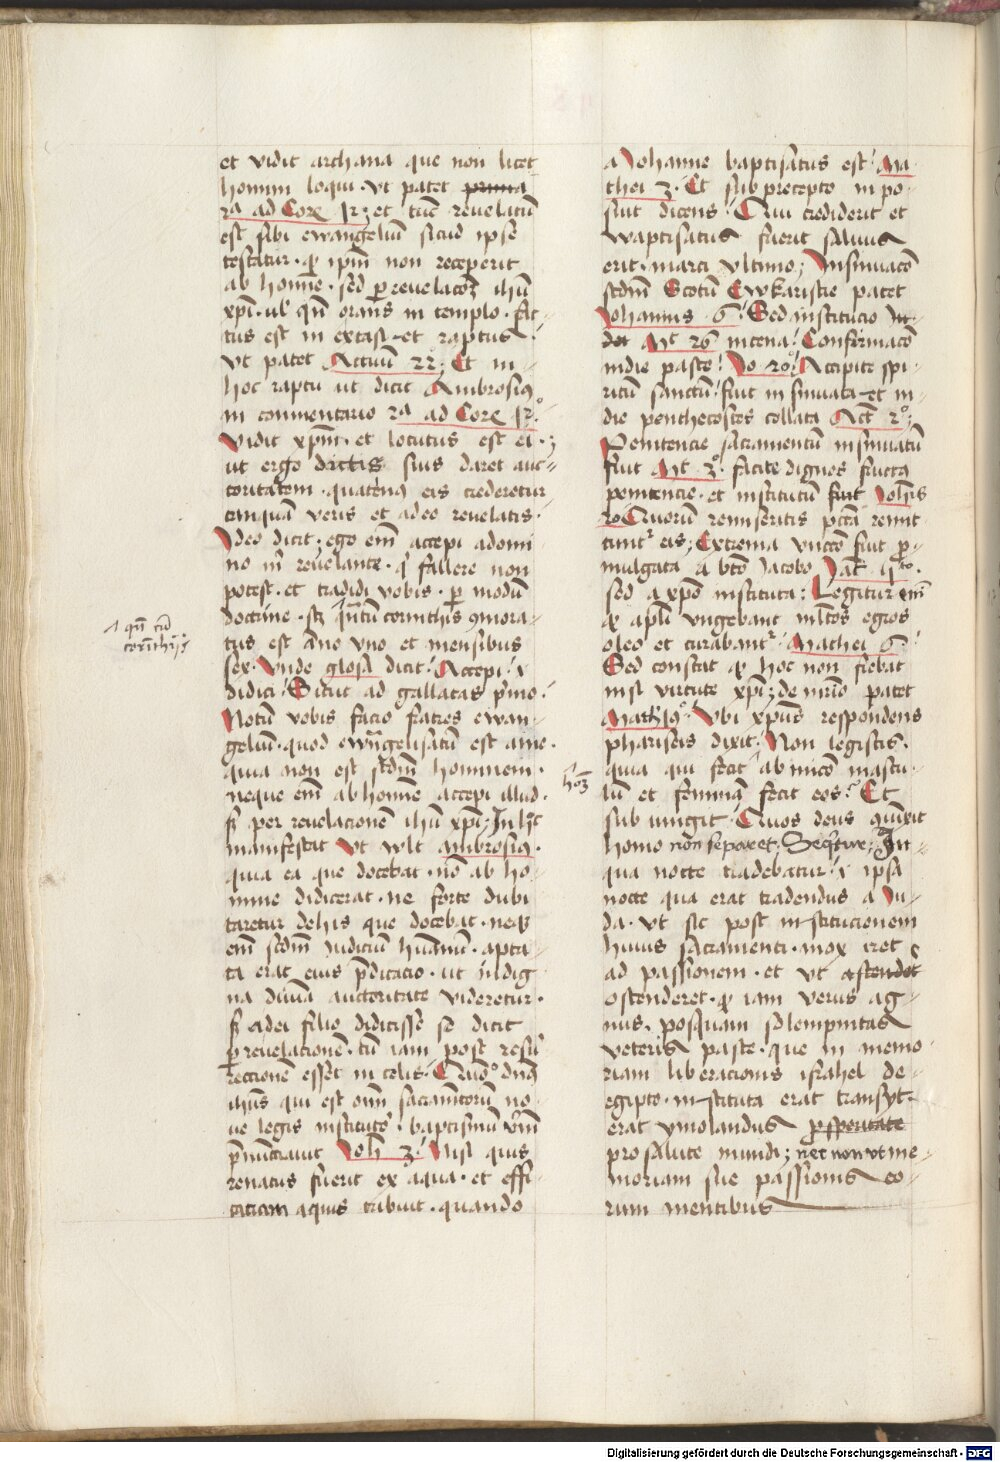 et vidit archana que non licet
homini loqui · vt patet prima
2a ad Core 12; et tūc reuelatū
est sibi ewangeliū sicud ipse
testatur · q ipm̄ non receperit
ab homīe · sed p reuelacōꝫ ihū
xpī · ul' qn̄ orans in templo · fac-
tus est in extasi · et raptus
vt patet Actuū 22; Et in
hoc raptu ut dicit Ambrosiꝰ
in commentario 2a ad Core 12°
Vidit xpm̄ · et locutus est ei ·;
ut ergo dictis suis daret auc-
toritatem · quatenꝰ eis crederetur
tanquā veris et a deo reuelatis ·
Ideo dicit · ego em̄ accepi a domi
no m̄ reuelante · q fallere non
potest · et tradidi vobis · p modū
doctrine · sꝫ qn̄tū corinthis ꝯmora-
tus est āno vno et mensibus
sex · Vnde glosa dicit · Accepi · i
didici · Sicut ad gallatas pmo ·
Notū vobis facio fratres ewan-
geliū · quod ewāgelisatū est a me ·
quia non est scdm̄ hominem ·
neque em̄ ab homīe accepi illud ·
sꝫ per reuelacionē ihū xpī; In hͦc
manifestat vt wlt ambrosiꝰ ·
quia ea que docebat · nō ab ho-
mine didicerat · ne forte dubi
taretur de his que docebat · neqꝫ
em̄ scdm̄ iudiciū humanū · apta-
ta erat eius pdicacio · ut indig
na diuīa auctoritate videretur ·
sꝫ a dei filio didicisse se dicit
p reuelacionē · cū iam post resu
reccionē esset in celis · Quō dn̄s
ihūs qui est om̄ sacramētorū no-
ue legis institutor baptismū
pnūctiauit Joh 3 · Nisi quis
renatus fuerit ex aqua · et effi
caciam aquis tribuit · quando
qn̄ cū
corinthijs
a Johanne baptisatus est · Ma
thei 3 · Et sub precepto inpo-
suit dicens · Qui crediderit et
waptisatus fuerit saluus
erit · marci vltimo; Insinuacō
scdm̄ Scotū Ewkaristie patet
Johannis 6 · Sed institucio in-
det Mt 26 in cena · Confirmacō
in die pasce · Jo 20 · Accipite spi-
ritū sanctū · fuit insinuata · et in
die penthecostes collata Act 2°;
Penitencie sacramentū insinuatū
fuit Mt 3° · facite dignos fructꝰ
penitencie · et institutū fuit Johīs
20 Quorū remiseritis pctā remit
tuntr eis; Extrema vnccō fuit p-
mulgata a bto Jacobo Jac 5to ·
sed a xpō instituta; Legitur em̄
q apli vngebant mltos egros
oleo et curabantr · Mathei 6 ·
Sed constat q hoc non fiebat
nisi virtute xpī; de mrīo patet
Math 19° · Vbi xpūs respondens
phariseis dixit · Non legistis ·
quia qui fecit ab inicō mascu-
lū et feminā fecit eos · Et
hoīeꝫ
sub iungit · Quos deus ꝯiūxit
homo non separet · Sequitur; In
qua nocte tradebatur · i ipsa
nocte qua erat tradendus a Ju-
da · vt sic post institucionem
huius sacramenti · mox iret
ad passionem · et vt ascendet
ostenderet · q iam verus ag-
nus · posquam solempnitas
veteris pasce · que in memo-
riam liberacionis israhel de
egipto · instituta erat transyt ·
erat ymolandus psperitate
pro salute mundi; nec non vt me-
moriam sue passionis eo-
rum mentibus
Digitalisierung gefördert durch die Deutsche Forschungsgemeinschaft - DFG